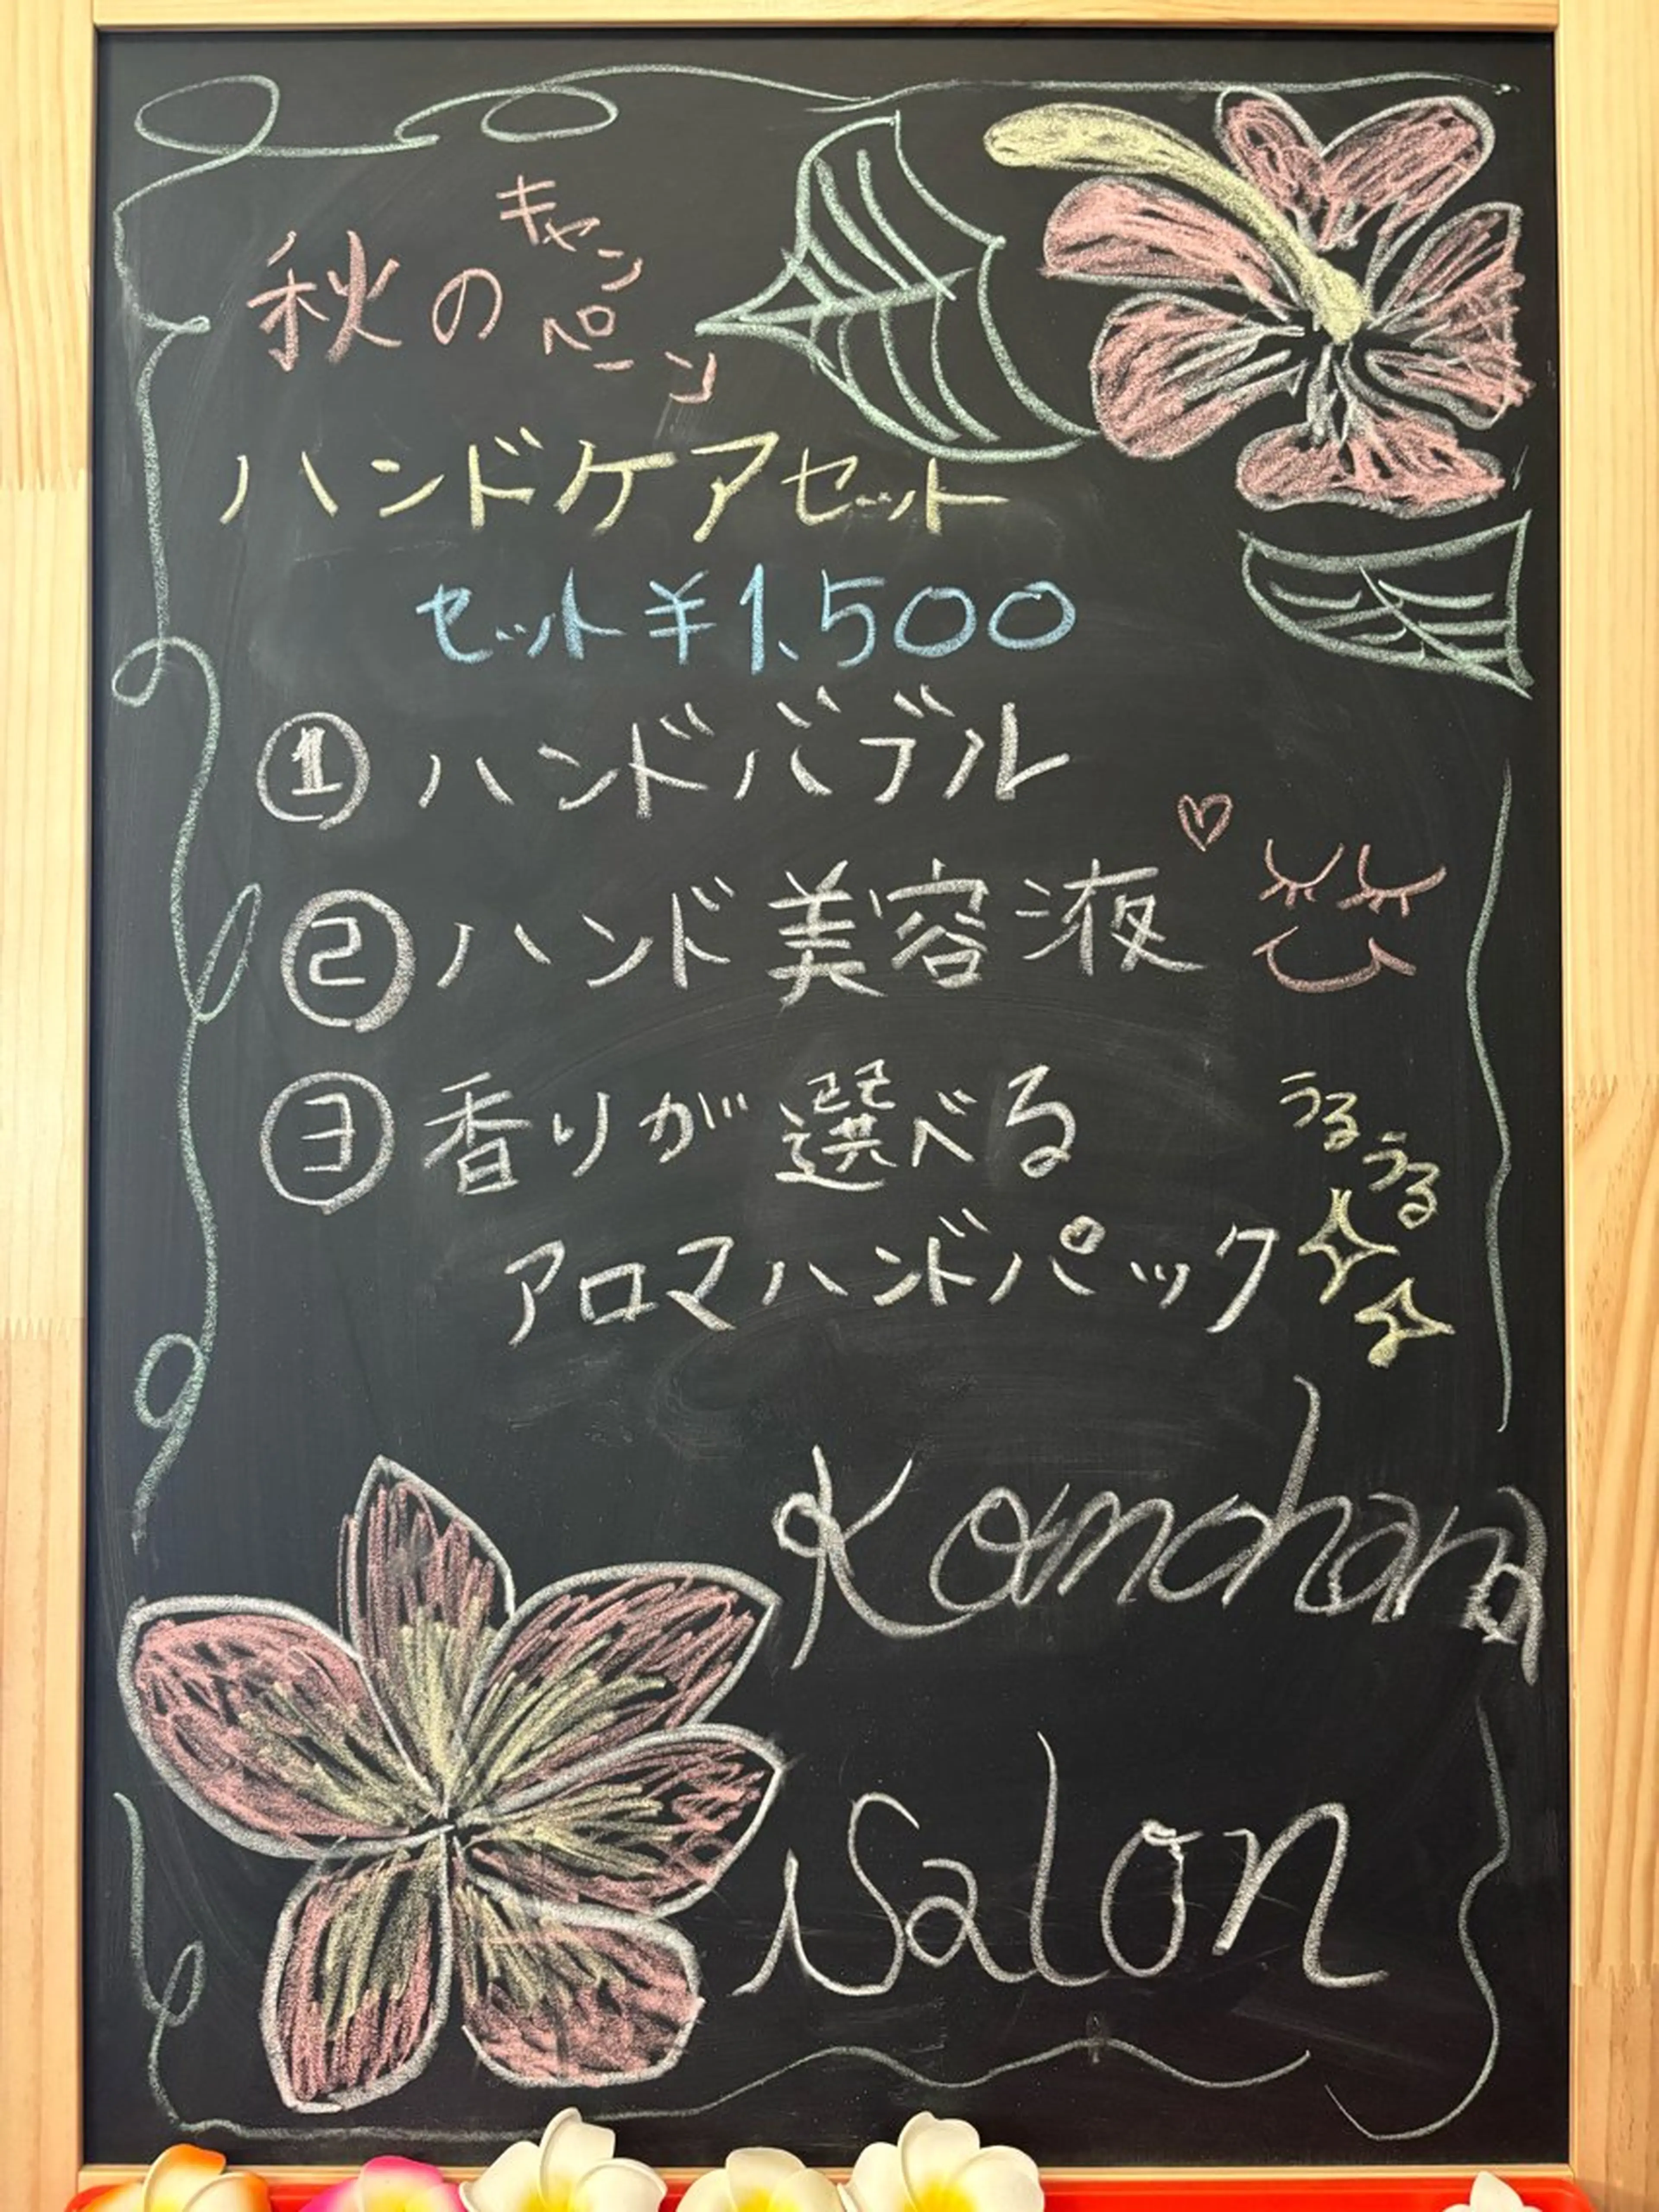 秋のキャンペーン
ハンドケアセット
セット¥1,500
① ハンドバブル
② ハンド美容液
③ 香りが選べる
うるうる
アロマハンドパック
Kamohana
Salon